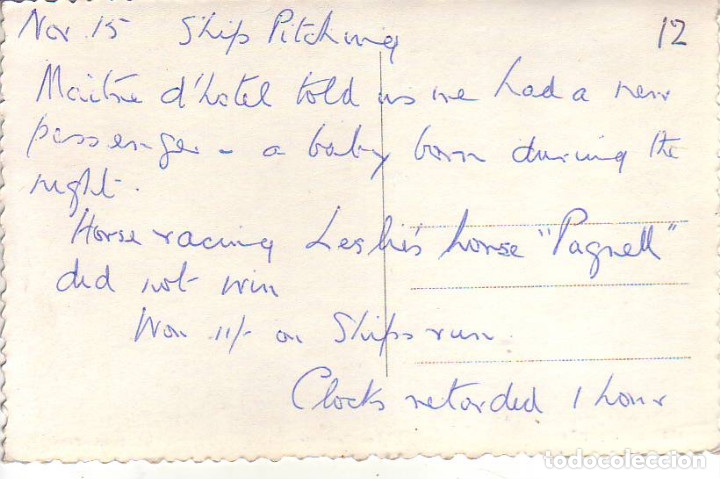 Nov. 15 Ship Pitching 12
Maitre d'hotel told us we had a new
passenger - a baby born during the
night.
Horse racing Leslie's horse "Pagnell"
did not win
Won 11/- on Ships run.
Clocks retarded 1 hour
todocoleccion
todocoleccion.net